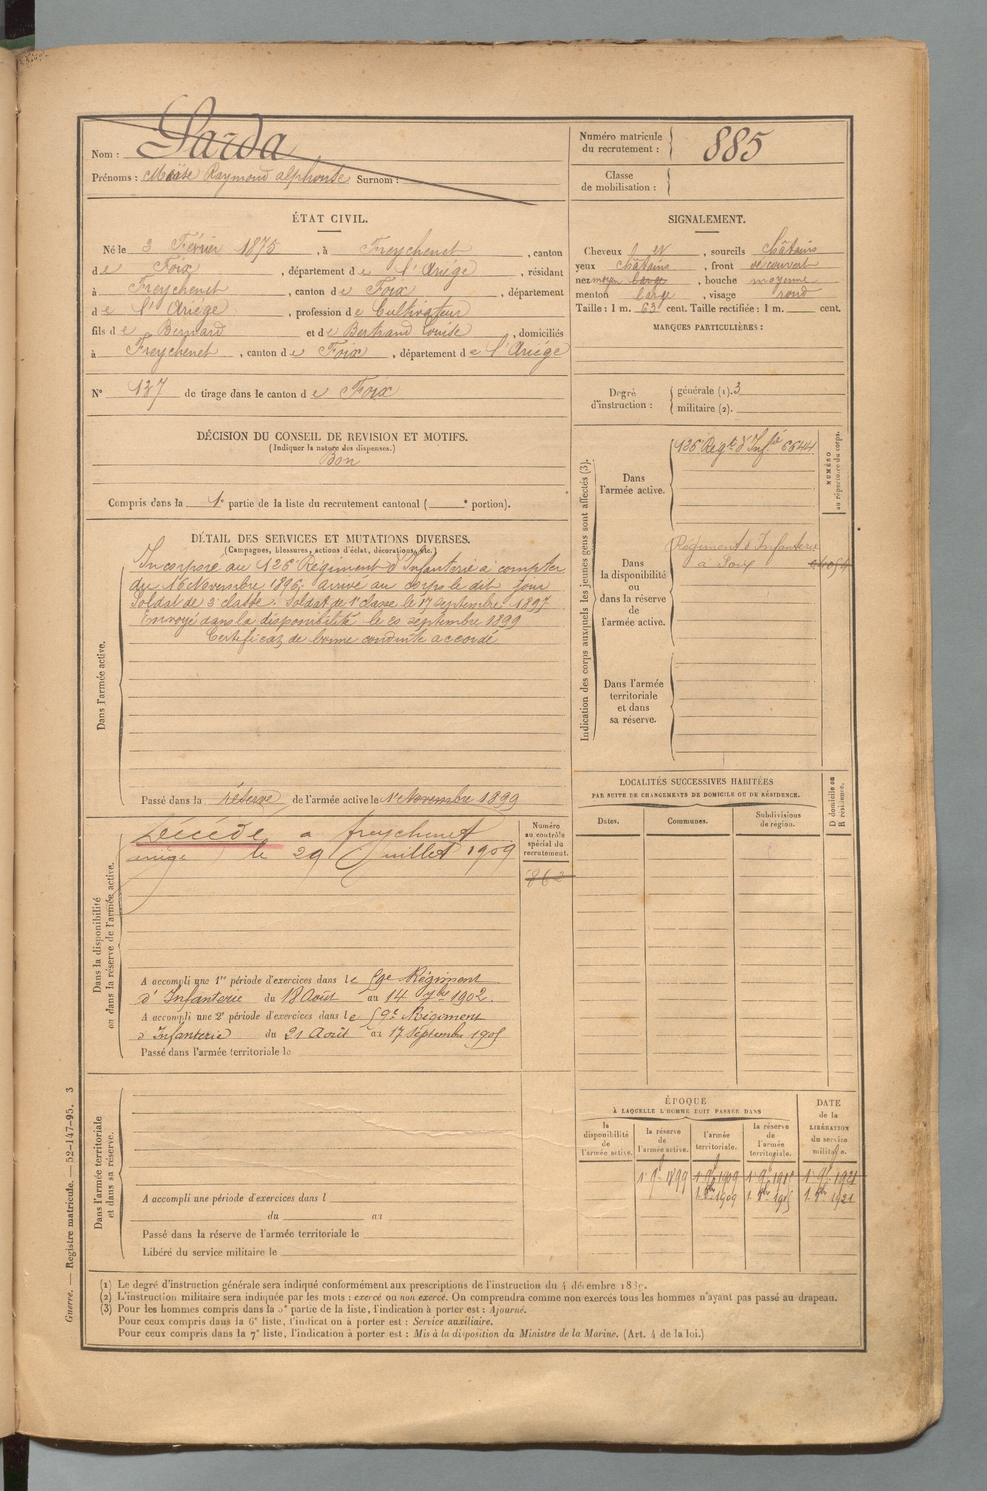 Nom : Sarda
Prénoms : Moïse Raymond alphonse Surnom :
Numéro matricule du recrutement : 885
Classe de mobilisation :
ÉTAT CIVIL.
Né le 3 Février 1875, à Freychenet, canton
de Foix, département de l'Ariège, résidant
à Freychenet, canton de Foix, département
de l'Ariège, profession de Cultivateur
fils de Bernard et de Bertrand Louise, domiciliés
à Freychenet, canton de Foix, département de l'Ariège
N° 137 de tirage dans le canton de Foix
SIGNALEMENT.
Cheveux et, sourcils châtains
yeux châtains, front découvert
nez moyen large, bouche moyenne
menton large, visage rond
Taille : 1 m. 63 cent. Taille rectifiée : 1 m. cent.
MARQUES PARTICULIÈRES :
Degré d'instruction : générale (1). 3
militaire (2).
DÉCISION DU CONSEIL DE REVISION ET MOTIFS.
(Indiquer la nature des dispenses.)
Bon
Compris dans la 1e partie de la liste du recrutement cantonal ( e portion).
DÉTAIL DES SERVICES ET MUTATIONS DIVERSES.
(Campagnes, blessures, actions d'éclat, décorations, etc.)
Dans l'armée active.
Incorporé au 126 Régiment d'Infanterie à compter
du 16 Novembre 1896, arrivé au corps le dit jour
Soldat de 2e classe. Soldat de 1e classe le 17 Septembre 1897
Envoyé dans la disponibilité le 20 septembre 1899
Certificat de bonne conduite accordé
Passé dans la réserve de l'armée active le 1 Novembre 1899
Indication des corps auxquels les jeunes gens sont affectés (3).
NUMÉRO au répertoire du corps.
Dans l'armée active.
126 Regt d'Infie 6644
Dans la disponibilité ou dans la réserve de l'armée active.
Régiment d'Infanterie
à Foix
Dans l'armée territoriale et dans sa réserve.
LOCALITÉS SUCCESSIVES HABITÉES
PAR SUITE DE CHANGEMENTS DE DOMICILE OU DE RÉSIDENCE.
Dates.
Communes.
Subdivisions de région.
D domicile ou R résidence.
Dans la disponibilité ou dans la réserve de l'armée active.
Décédé à freychenet
ariège le 29 Juillet 1909
Numéro au contrôle spécial du recrutement.
862
A accompli une 1re période d'exercices dans le 59e Régiment
d'Infanterie du 18 Août au 14 7bre 1902.
A accompli une 2e période d'exercices dans le 59e Régiment
d'Infanterie du 21 Août au 17 Septembre 1905
Passé dans l'armée territoriale le
Dans l'armée territoriale et dans sa réserve.
A accompli une période d'exercices dans l
du au
Passé dans la réserve de l'armée territoriale le
Libéré du service militaire le
ÉPOQUE
À LAQUELLE L'HOMME DOIT PASSER DANS
la disponibilité de l'armée active.
la réserve de l'armée active.
l'armée territoriale.
la réserve de l'armée territoriale.
DATE de la LIBÉRATION du service militaire.
(1) Le degré d'instruction générale sera indiqué conformément aux prescriptions de l'instruction du 4 décembre
(2) L'instruction militaire sera indiquée par les mots : exercé ou non exercé. On comprendra comme non exercés tous les hommes n'ayant pas passé au drapeau.
(3) Pour les hommes compris dans la 5e partie de la liste, l'indication à porter est : Ajourné.
Pour ceux compris dans la 6e liste, l'indication à porter est : Service auxiliaire.
Pour ceux compris dans la 7e liste, l'indication à porter est : Mis à la disposition du Ministre de la Marine. (Art. 4 de la loi.)
Guerre. — Registre matricule. — 52-147-95. 3